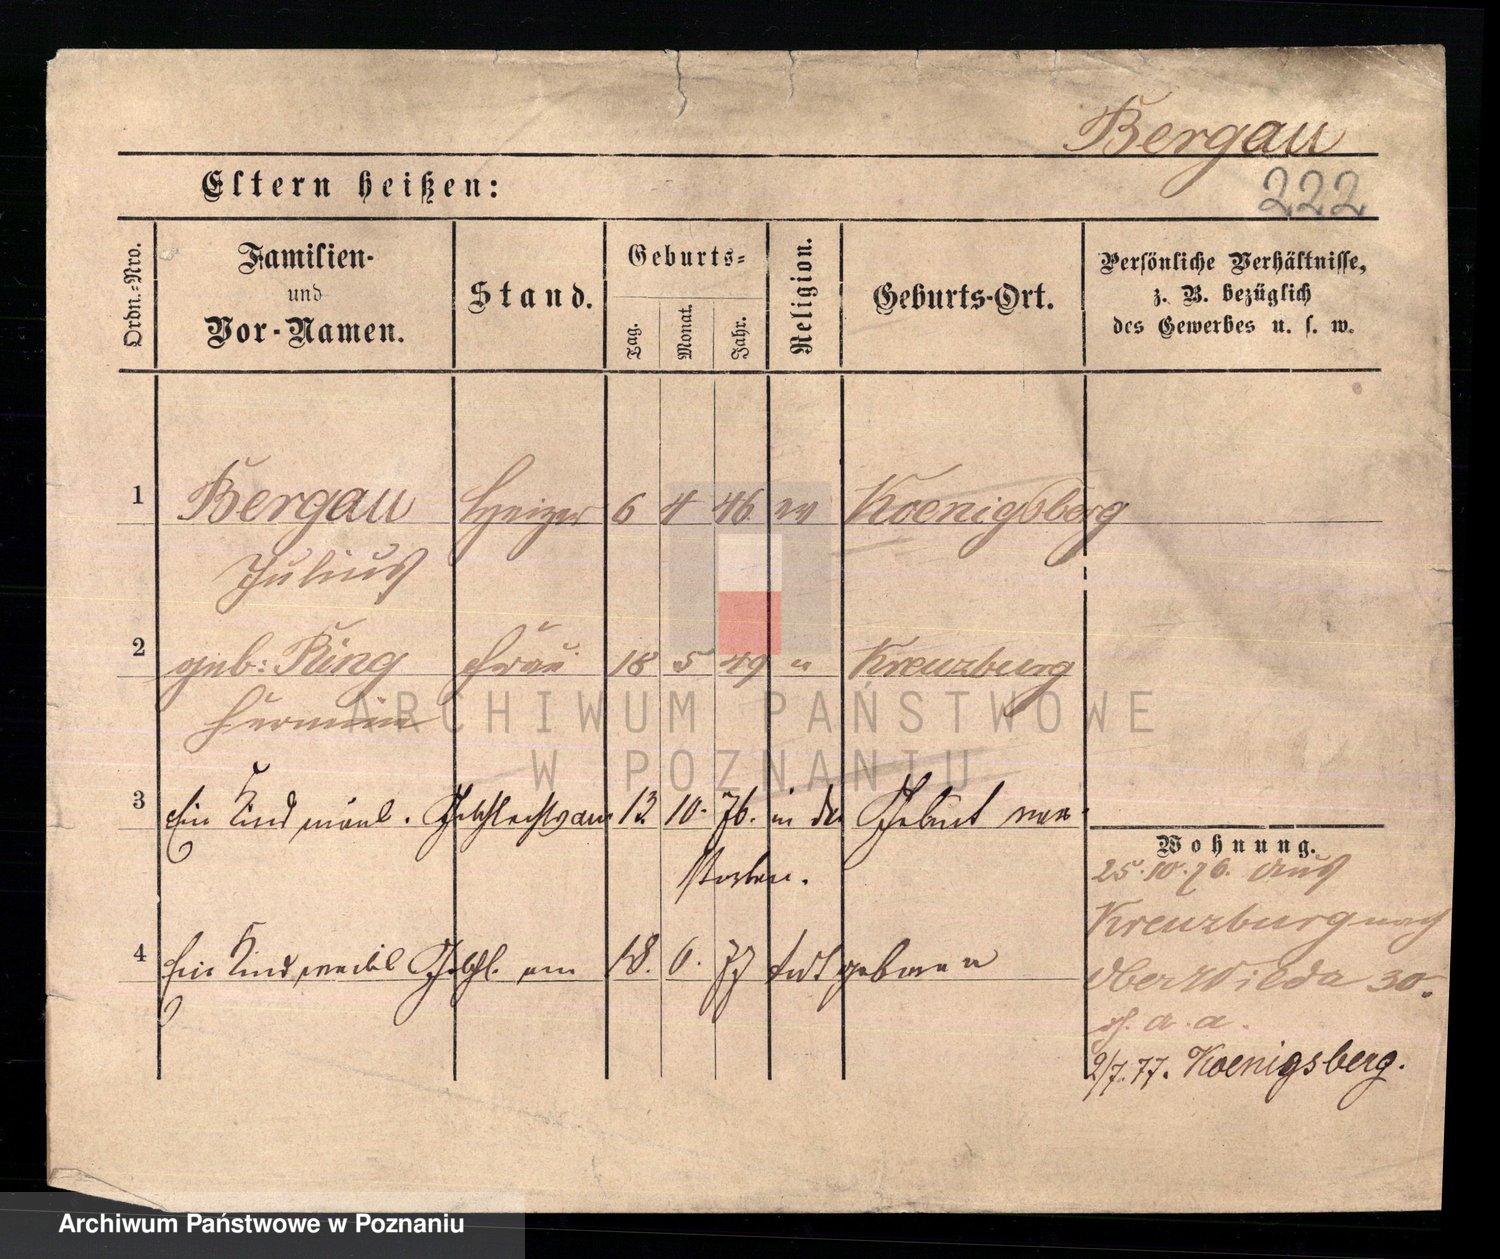 Bergau
Eltern heißen:
222
Ordn.-Nro.
Familien-
und
Vor-Namen.
Stand.
Geburts-
Tag.
Monat.
Jahr.
Religion.
Geburts-Ort.
Persönliche Verhältnisse,
z. B. bezüglich
des Gewerbes u. s. w.
1 Bergau Heizer 6 4 46 ev Koenigsberg
Julius
2 geb: Ring Frau 18 5 49 " Kreuzburg
Hermine
ARCHIWUM PAŃSTWOWE
W POZNANIU
3 Ein Kind männl. Geschlechts am 13 10. 76. in der Geburt ver-
storben.
Wohnung.
25.10.76. aus
Kreuzburg nach
Ober Wilda 30.
4 Ein Kind weibl Geschl. am 18. 6. 77 todtgeboren
a. a.
2/7.77. Koenigsberg.
Archiwum Państwowe w Poznaniu